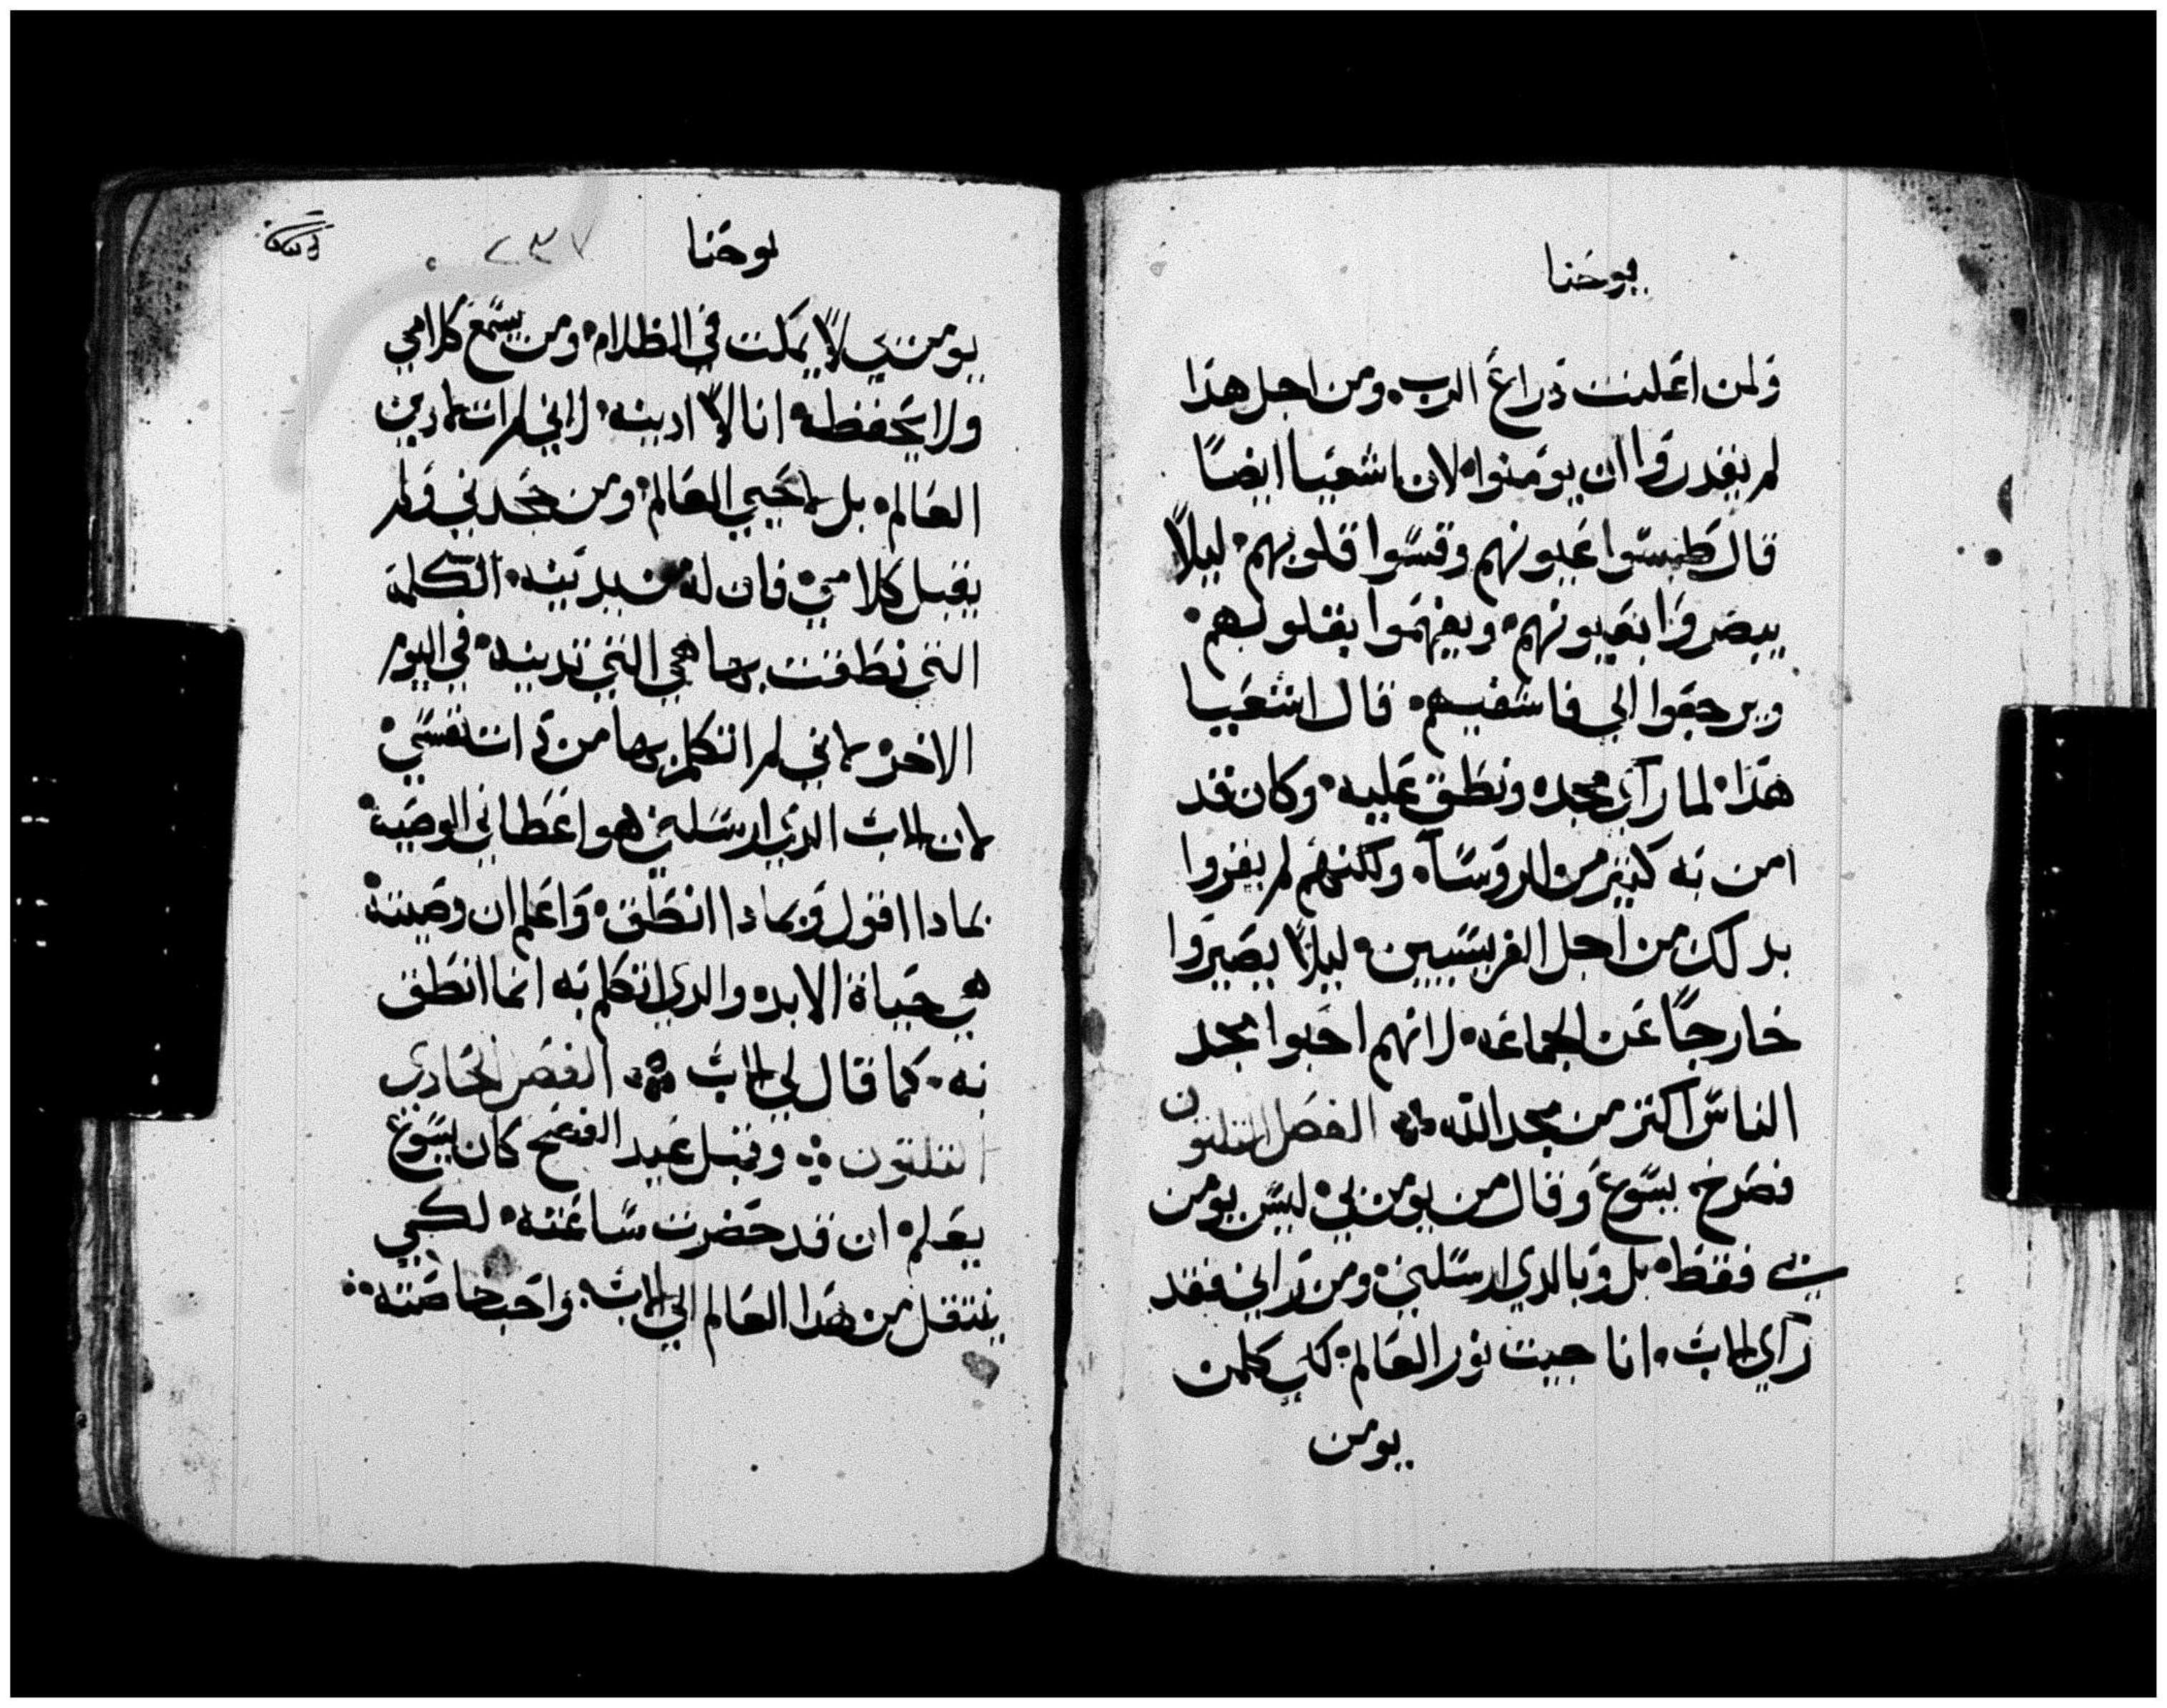 يوحنا
ولمن اعلنت ذراع الرب ومن اجل هذا
لم يقدروا ان يومنوا لان اشعيا ايضًا
قال طمسّوا عيونهم وقسّوا قلوبهم ليلاً
يبصروا بعيونهم ويفهموا بقلوبهم
ويرجعوا الي فاشفيهم قال اشعيا
هذا لما رآي مجده ونطق عليه وكان قد
امن به كثير من الروسآء ولكنهم لم يقروا
بدلك من اجل الفريسيين ليلاً يصيروا
خارجًا عن الجماعه لانهم احبوا مجد
الناس اكثر من مجد الله الفصل الثلثون
فصرخ يسوع وقال من يومن بي ليس يومن
بي فقط بل وبالدي ارسلني ومن رآني فقد
رآي الاب انا جيت نور العالم كل من
يومن
يوحنا
٢٣٧
يومن بي لا يمكت في الظلام ومن يسمع كلامي
ولا يحفظه انا لا ادينه لاني لم ات لادين
العالم بل لاحيي العالم ومن جحدني ولم
يقبل كلامي فان له من يدينه الكلمة
التي نطقت بها هي التي تدينه في اليوم
الاخر لاني لم اتكلم بها من ذات نفسي
لان الاب الدي ارسلني هو اعطاني الوصيه
بمادا اقول وبمادا انطق واعلم ان وصيته
هي حياة الابد والدي اتكلم به انما انطق
به كما قال لي الاب الفصر الحادي
الثلثون وقبل عيد الفصح كان يسوع
يعلم ان قد حضرت ساعته لكي
ينتقل من هدا العالم الي الاب واحب خاصته